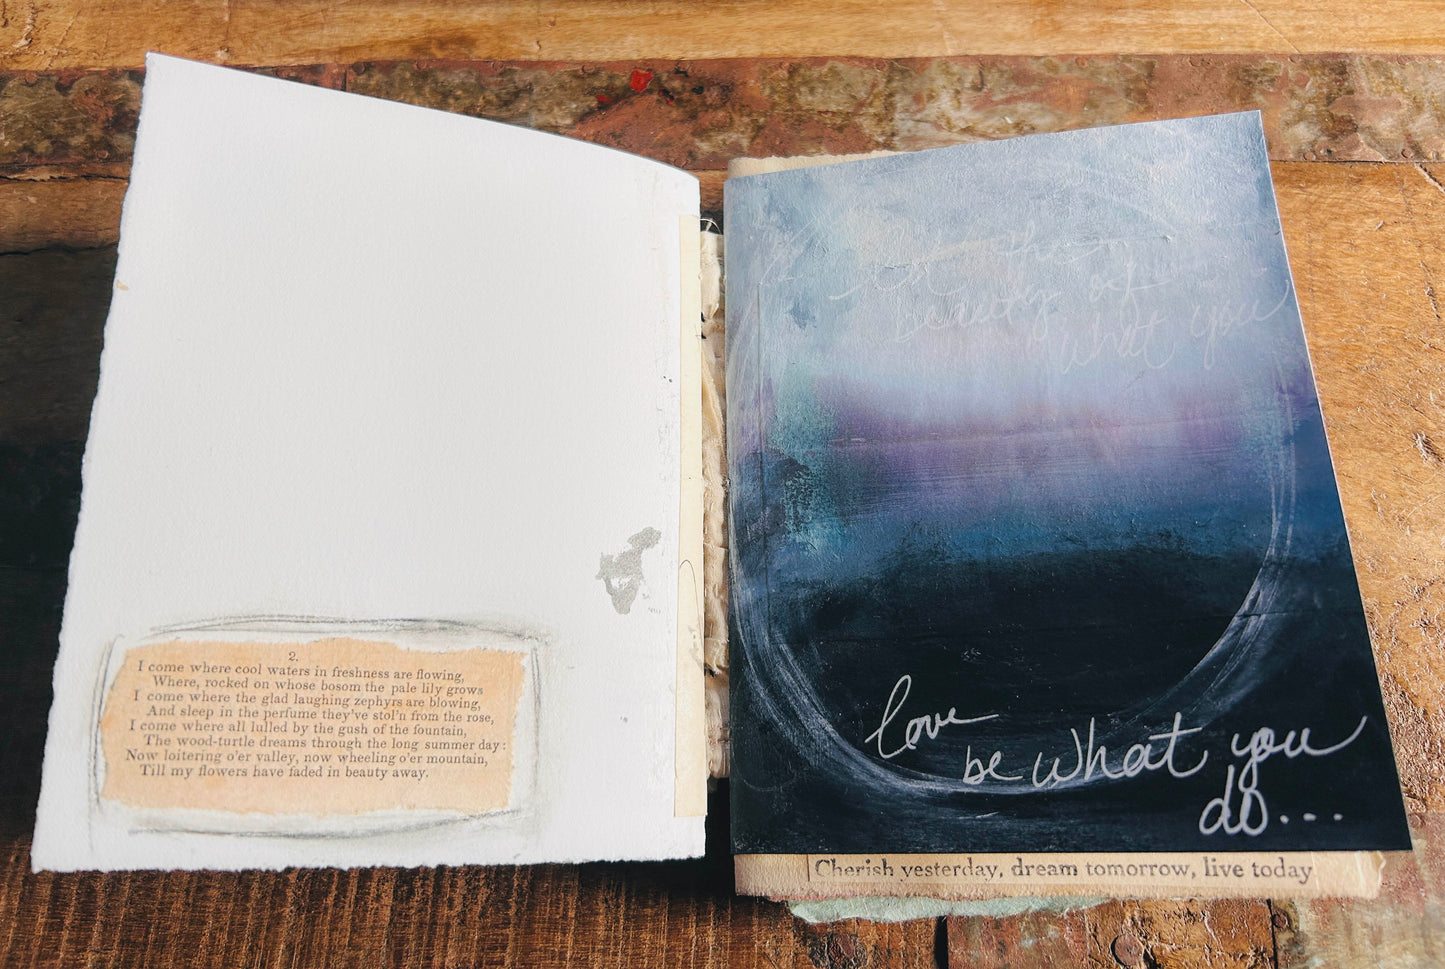 2.
I come where cool waters in freshness are flowing,
Where, rocked on whose bosom the pale lily grows
I come where the glad laughing zephyrs are blowing,
And sleep in the perfume they've stol'n from the rose,
I come where all lulled by the gush of the fountain,
The wood-turtle dreams through the long summer day:
Now loitering o'er valley, now wheeling o'er mountain,
Till my flowers have faded in beauty away.
in the
beauty of
what you
love
be what you
do...
Cherish yesterday, dream tomorrow, live today